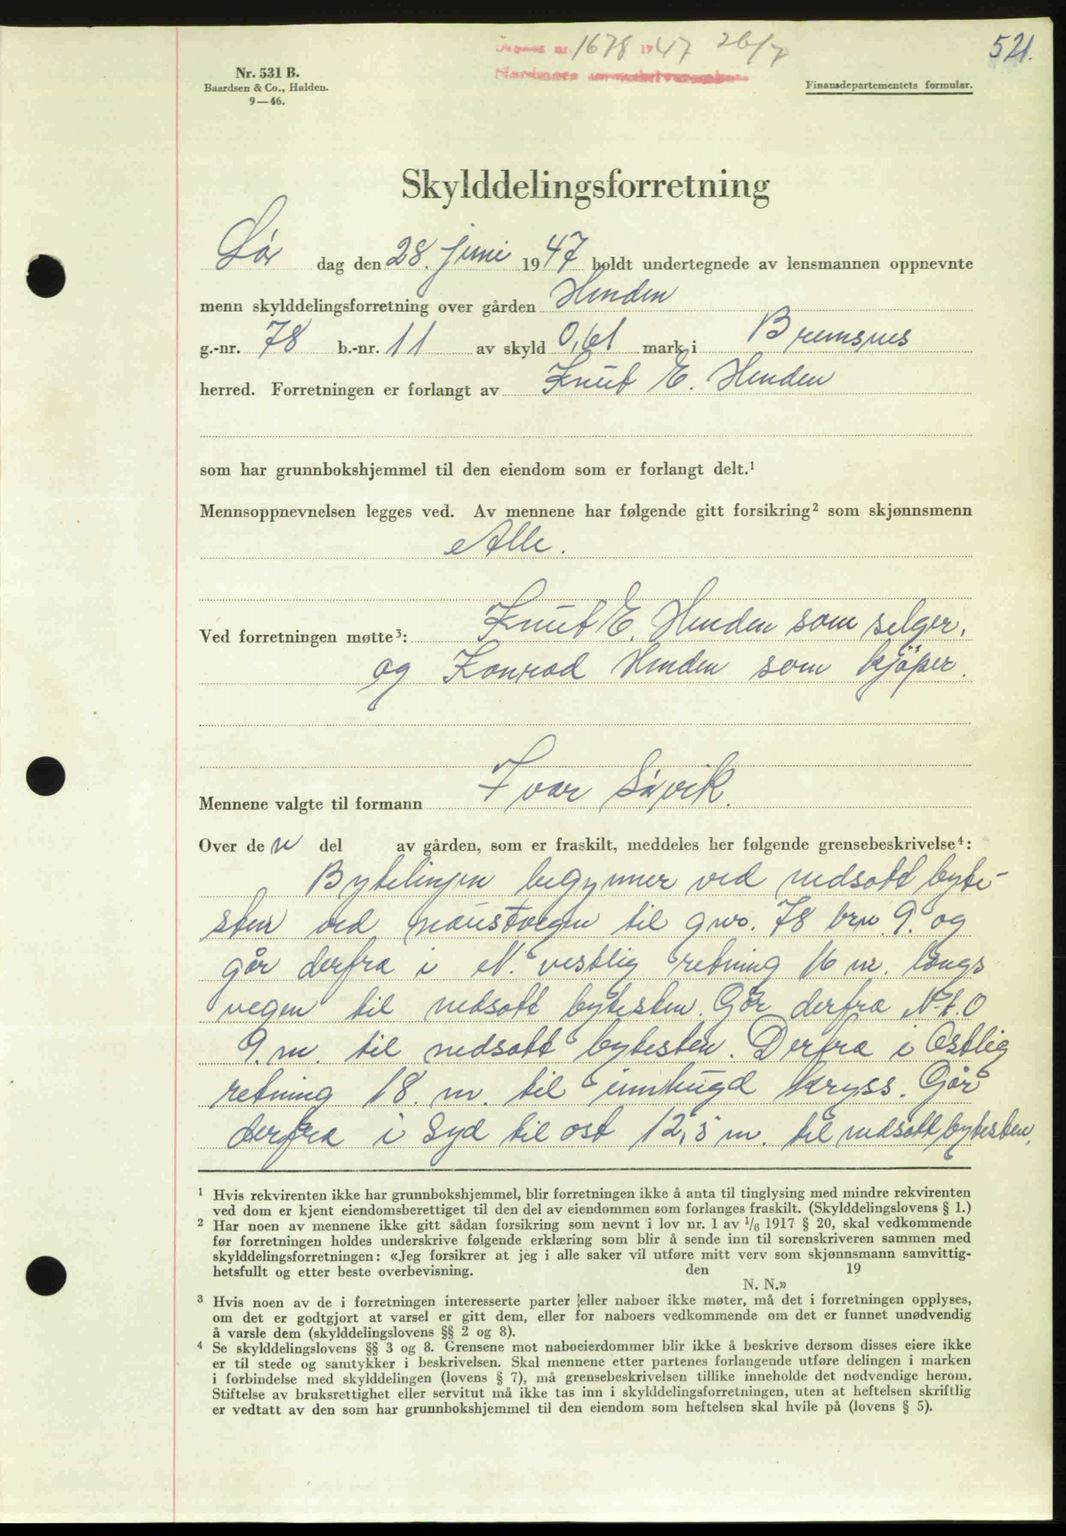 1678 1947 26/7
521.
Nr. 531 B.
Baardsen & Co., Halden.
9—46.
Finansdepartementets formular.
Skylddelingsforretning
Lør dag den 28. juni 1947 holdt undertegnede av lensmannen oppnevnte
menn skylddelingsforretning over gården Henden
g.-nr. 78 b.-nr. 11 av skyld 0,61 mark i Bremsnes
herred. Forretningen er forlangt av Knut E. Henden
som har grunnbokshjemmel til den eiendom som er forlangt delt.¹
Mennsoppnevnelsen legges ved. Av mennene har følgende gitt forsikring² som skjønnsmenn
Alle.
Ved forretningen møtte³: Knut E. Henden som selger,
og Konrad Henden som kjøper.
Mennene valgte til formann Ivar Søvik.
Over de n del av gården, som er fraskilt, meddeles her følgende grensebeskrivelse⁴:
Bytelinjen begynner ved nedsatt byte-
sten ved naustvegen til gnr. 78 brn. 9. og
går derfra i N. vestlig retning 16 m. langs
vegen til nedsatt bytesten. Går derfra N.t.O
9. m. til nedsatt bytesten. Derfra i Østlig
retning 18. m. til innhugd kryss. Går
derfra i Syd til ost 12,5 m. til nedsatt bytesten.
¹ Hvis rekvirenten ikke har grunnbokshjemmel, blir forretningen ikke å anta til tinglysing med mindre rekvirenten
ved dom er kjent eiendomsberettiget til den del av eiendommen som forlanges fraskilt. (Skylddelingslovens § 1.)
² Har noen av mennene ikke gitt sådan forsikring som nevnt i lov nr. 1 av 1/6 1917 § 20, skal vedkommende
før forretningen holdes underskrive følgende erklæring som blir å sende inn til sorenskriveren sammen med
skylddelingsforretningen: «Jeg forsikrer at jeg i alle saker vil utføre mitt verv som skjønnsmann samvittig-
hetsfullt og etter beste overbevisning. den 19
N. N.»
³ Hvis noen av de i forretningen interesserte parter eller naboer ikke møter, må det i forretningen opplyses,
om det er godtgjort at varsel er gitt dem, eller for naboers vedkommende om det er funnet unødvendig
å varsle dem (skylddelingslovens §§ 2 og 8).
⁴ Se skylddelingslovens §§ 3 og 8. Grensene mot naboeierdommer blir ikke å beskrive dersom disses eiere ikke
er til stede og samtykker i beskrivelsen. Skal mennene etter partenes forlangende utføre delingen i marken
i forbindelse med skylddelingen (lovens § 7), må grensebeskrivelsen tillike inneholde det nødvendige herom.
Stiftelse av bruksrettighet eller servitut må ikke tas inn i skylddelingsforretningen, uten at heftelsen skriftlig
er vedtatt av den som har grunnbokshjemmel til den eiendom som heftelsen skal hvile på (lovens § 5).